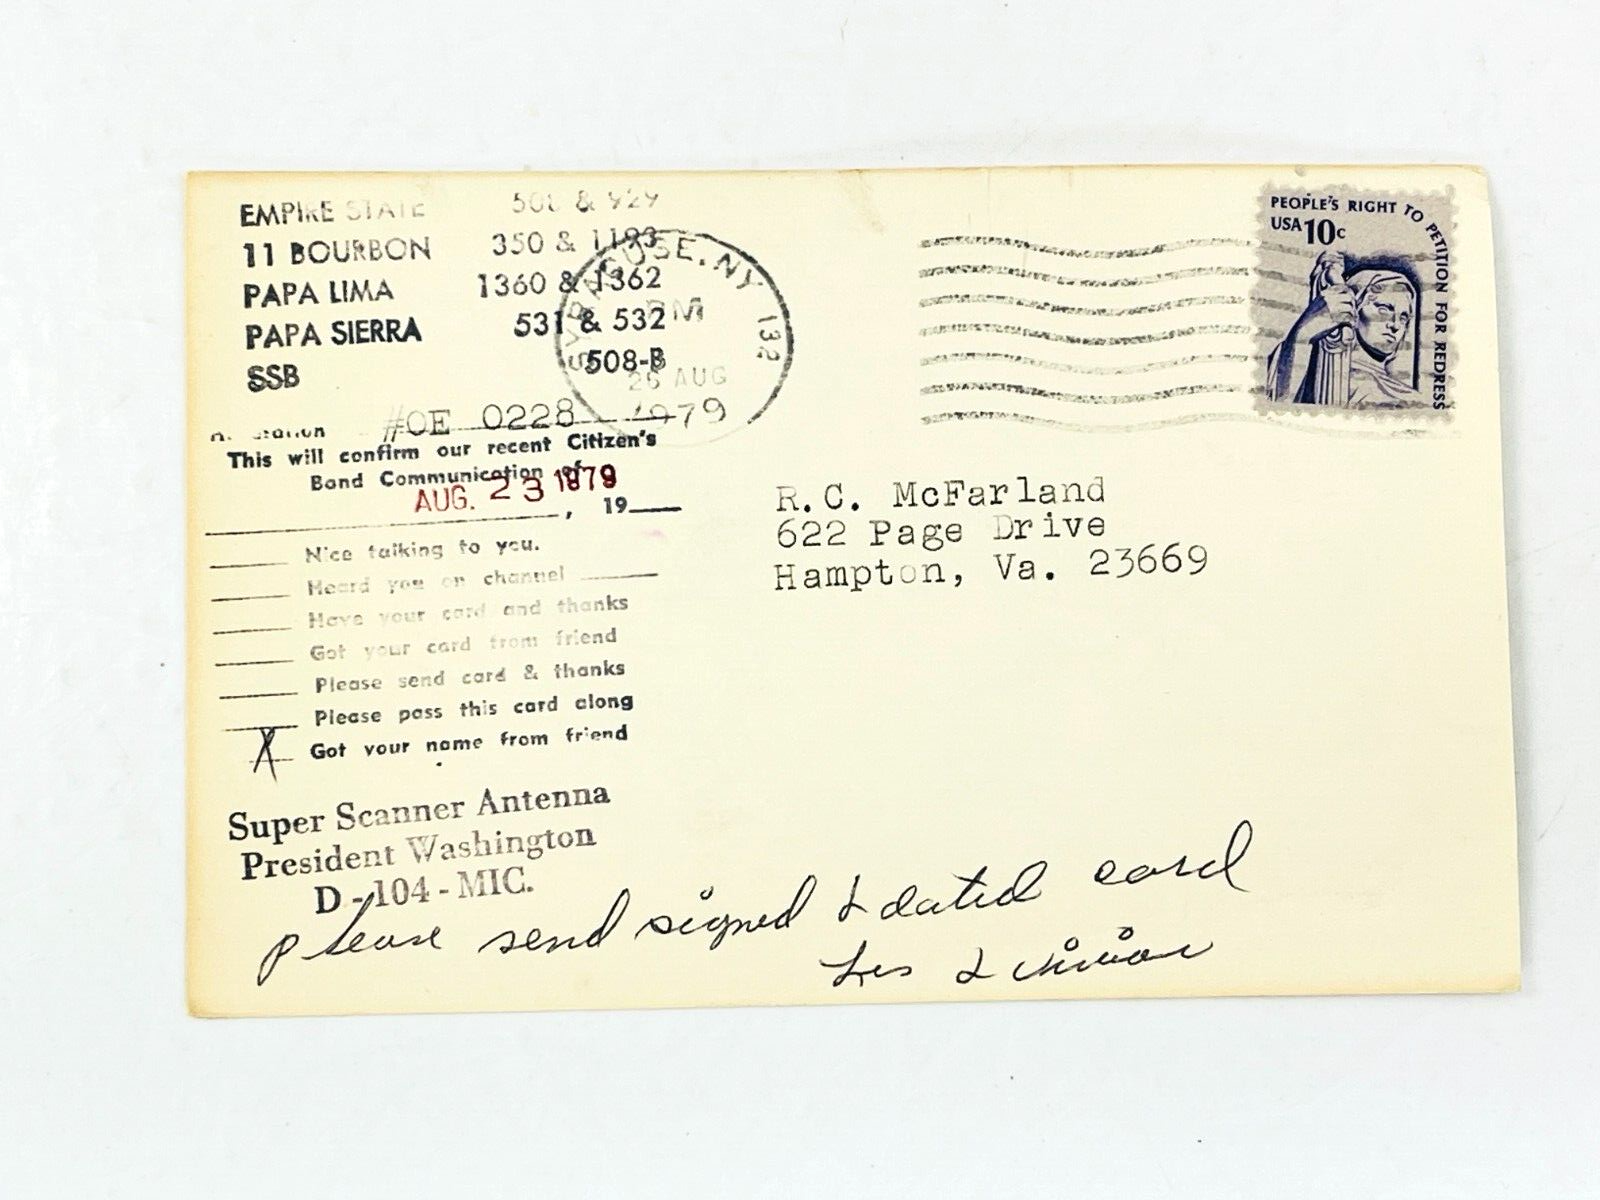 EMPIRE STATE 508 & 929
11 BOURBON 350 & 1193
PAPA LIMA 1360 & 1362
PAPA SIERRA 531 & 532
SSB 508-B
#OE 0228
This will confirm our recent Citizen's
Band Communication of
AUG. 23 1979
, 19
Nice talking to you.
Heard you on channel
Have your card and thanks
Got your card from friend
Please send card & thanks
Please pass this card along
X Got your name from friend
Super Scanner Antenna
President Washington
D-104-MIC.
SYRACUSE, NY 132
PM
26 AUG
1979
PEOPLE'S RIGHT TO PETITION FOR REDRESS
USA 10c
R.C. McFarland
622 Page Drive
Hampton, Va. 23669
please send signed & dated card
Les & Vivian